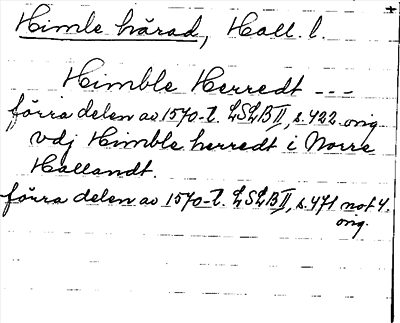 Himle härad, Hall. l.
Himble Herredt ---
förra delen av 1570-t. LSLB II, s. 422. orig.
udj Himble herredt i Norre
Hallandt.
förra delen av 1570-t. LSLB II, s. 471 not 4.
orig.